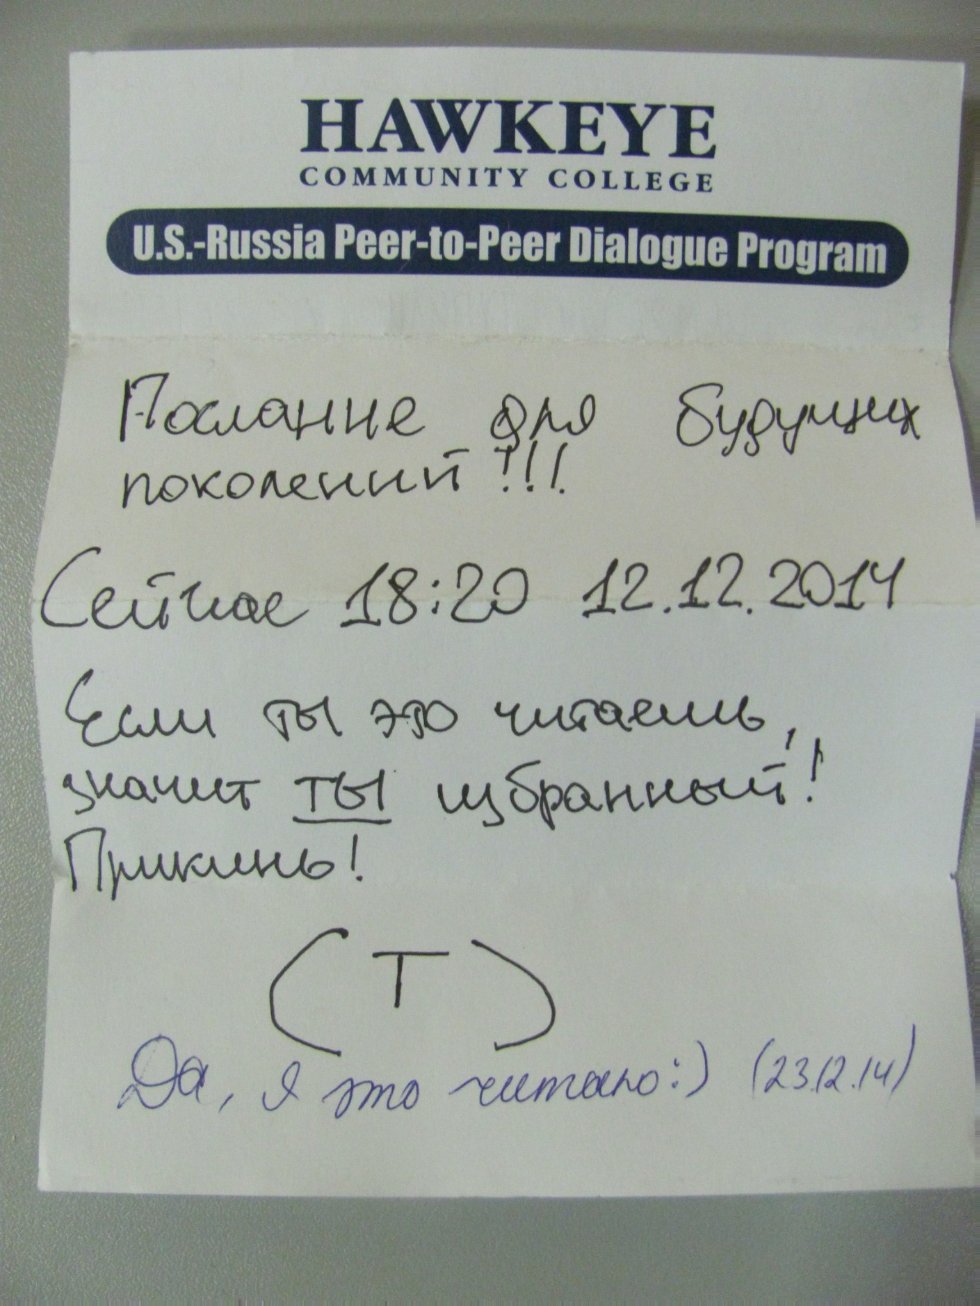 HAWKEYE
COMMUNITY COLLEGE
U.S.-Russia Peer-to-Peer Dialogue Program
Послание для будущих
поколений!!!
Сейчас 18:20 12.12.2014
Если ты это читаешь,
значит ты избранный!
Прикинь!
(T)
Да, я это читаю:) (23.12.14)